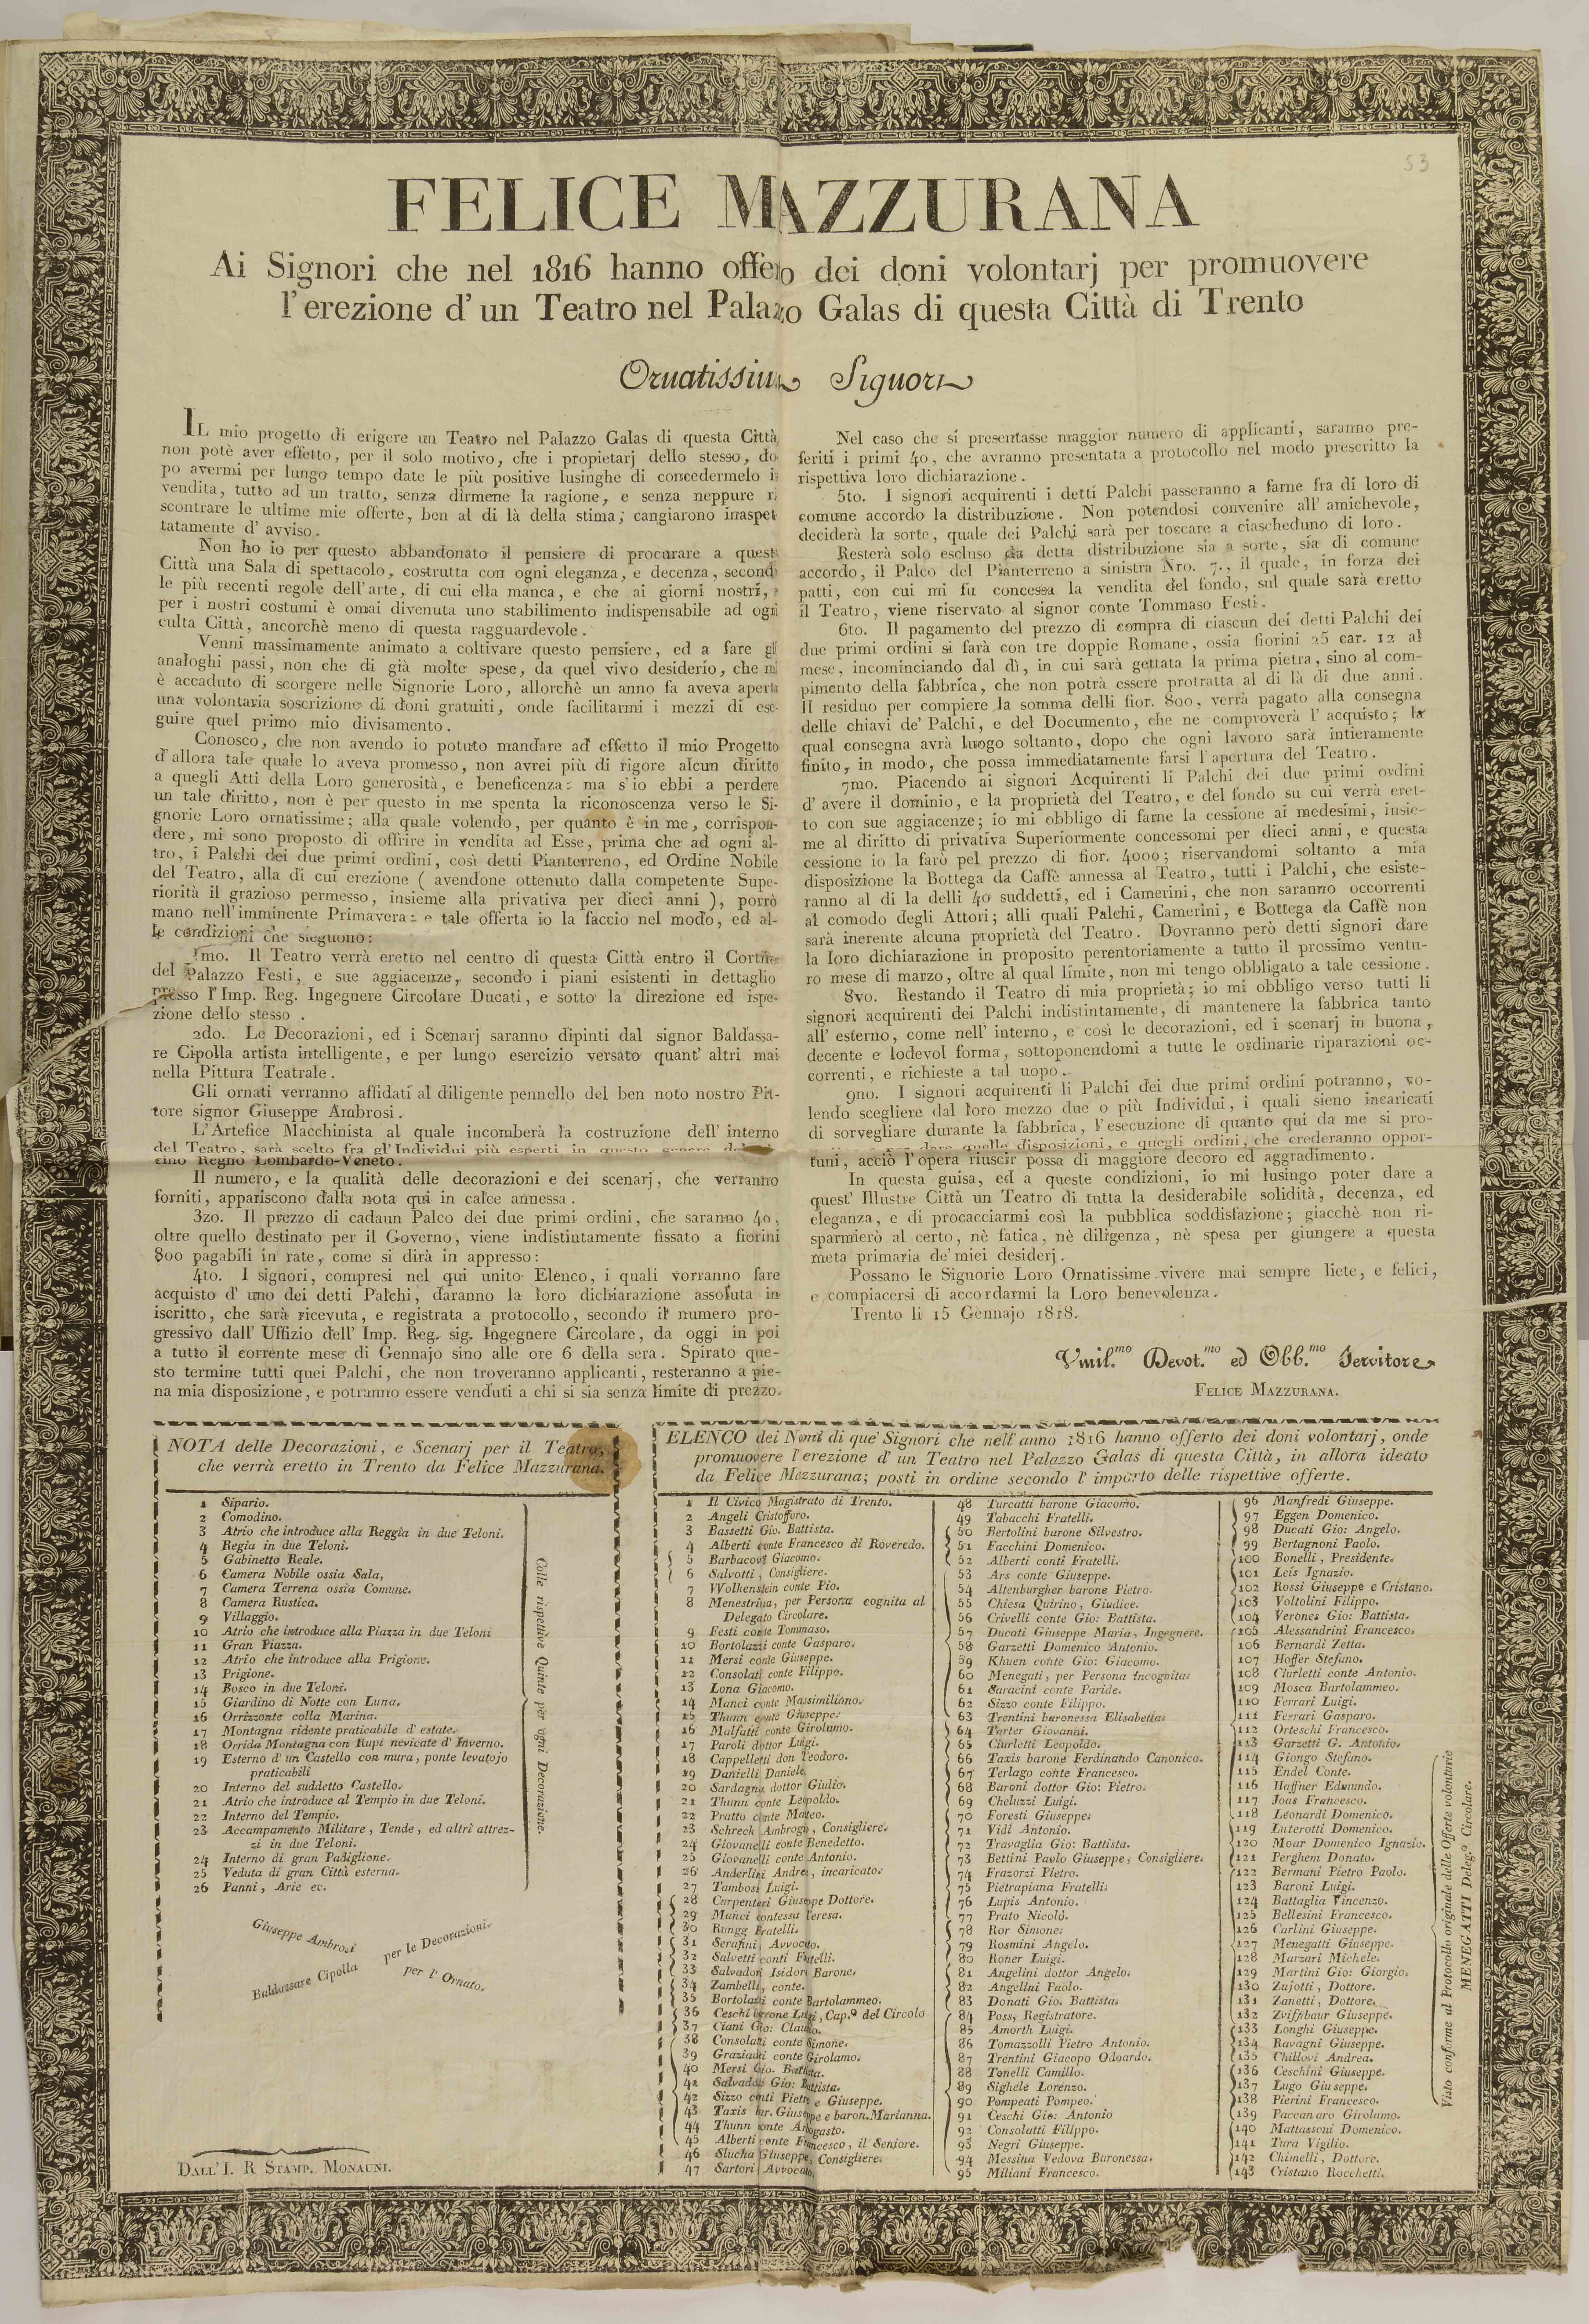 53
FELICE MAZZURANA
Ai Signori che nel 1816 hanno offerto dei doni volontarj per promuovere
l'erezione d'un Teatro nel Palazzo Galas di questa Città di Trento
Ornatissimi Signori
IL mio progetto di erigere un Teatro nel Palazzo Galas di questa Città
non potè aver effetto, per il solo motivo, che i propietarj dello stesso, do-
po avermi per lungo tempo date le più positive lusinghe di concedermelo in
vendita, tutto ad un tratto, senza dirmene la ragione, e senza neppure ri
scontrare le ultime mie offerte, ben al di là della stima; cangiarono inaspet
tatamente d'avviso.
Non ho io per questo abbandonato il pensiere di procurare a questa
Città una Sala di spettacolo, costrutta con ogni eleganza, e decenza, secondo
le più recenti regole dell'arte, di cui ella manca, e che ai giorni nostri, e
per i nostri costumi è omai divenuta uno stabilimento indispensabile ad ogni
culta Città, ancorchè meno di questa ragguardevole.
Venni massimamente animato a coltivare questo pensiere, ed a fare gli
analoghi passi, non che di già molte spese, da quel vivo desiderio, che mi
è accaduto di scorgere nelle Signorie Loro, allorchè un anno fa aveva aperta
una volontaria soscrizione di doni gratuiti, onde facilitarmi i mezzi di ese-
guire quel primo mio divisamento.
Conosco, che non avendo io potuto mandare ad effetto il mio Progetto
d'allora tale quale lo aveva promesso, non avrei più di rigore alcun diritto
a quegli Atti della Loro generosità, e beneficenza: ma s'io ebbi a perdere
un tale diritto, non è per questo in me spenta la riconoscenza verso le Si-
gnorie Loro ornatissime; alla quale volendo, per quanto è in me, corrispon-
dere, mi sono proposto di offrire in vendita ad Esse, prima che ad ogni al-
tro, i Palchi dei due primi ordini, così detti Pianterreno, ed Ordine Nobile
del Teatro, alla di cui erezione ( avendone ottenuto dalla competente Supe-
riorità il grazioso permesso, insieme alla privativa per dieci anni ), porrò
mano nell'imminente Primavera: e tale offerta io la faccio nel modo, ed al-
le condizioni che sieguono:
1mo. Il Teatro verrà eretto nel centro di questa Città entro il Cortile
del Palazzo Festi, e sue aggiacenze, secondo i piani esistenti in dettaglio
presso l'Imp. Reg. Ingegnere Circolare Ducati, e sotto la direzione ed ispe-
zione dello stesso.
2do. Le Decorazioni, ed i Scenarj saranno dipinti dal signor Baldassa-
re Cipolla artista intelligente, e per lungo esercizio versato quant'altri mai
nella Pittura Teatrale.
Gli ornati verranno affidati al diligente pennello del ben noto nostro Pit-
tore signor Giuseppe Ambrosi.
L'Artefice Macchinista al quale incomberà la costruzione dell'interno
del Teatro, sarà scelto fra gl'Individui più esperti in questo genere del vi-
cino Regno Lombardo-Veneto.
Il numero, e la qualità delle decorazioni e dei scenarj, che verranno
forniti, appariscono dalla nota qui in calce annessa.
3zo. Il prezzo di cadaun Palco dei due primi ordini, che saranno 40,
oltre quello destinato per il Governo, viene indistintamente fissato a fiorini
800 pagabili in rate, come si dirà in appresso:
4to. I signori, compresi nel qui unito Elenco, i quali vorranno fare
acquisto d'uno dei detti Palchi, daranno la loro dichiarazione assoluta in
iscritto, che sarà ricevuta, e registrata a protocollo, secondo il numero pro-
gressivo dall'Uffizio dell'Imp. Reg. sig. Ingegnere Circolare, da oggi in poi
a tutto il corrente mese di Gennajo sino alle ore 6 della sera. Spirato que-
sto termine tutti quei Palchi, che non troveranno applicanti, resteranno a pie-
na mia disposizione, e potranno essere venduti a chi si sia senza limite di prezzo.
Nel caso che si presentasse maggior numero di applicanti, saranno pre-
feriti i primi 40, che avranno presentata a protocollo nel modo prescritto la
rispettiva loro dichiarazione.
5to. I signori acquirenti i detti Palchi passeranno a farne fra di loro di
comune accordo la distribuzione. Non potendosi convenire all'amichevole,
deciderà la sorte, quale dei Palchi sarà per toccare a ciascheduno di loro.
Resterà solo escluso da detta distribuzione sia a sorte, sia di comune
accordo, il Palco del Pianterreno a sinistra Nro. 7., il quale, in forza dei
patti, con cui mi fu concessa la vendita del fondo, sul quale sarà eretto
il Teatro, viene riservato al signor conte Tommaso Festi.
6to. Il pagamento del prezzo di compra di ciascun dei detti Palchi dei
due primi ordini si farà con tre doppie Romane, ossia fiorini 25 car. 12 al
mese, incominciando dal dì, in cui sarà gettata la prima pietra, sino al com-
pimento della fabbrica, che non potrà essere protratta al di là di due anni.
Il residuo per compiere la somma delli fior. 800, verrà pagato alla consegna
delle chiavi de' Palchi, e del Documento, che ne comproverà l'acquisto; la
qual consegna avrà luogo soltanto, dopo che ogni lavoro sarà intieramente
finito, in modo, che possa immediatamente farsi l'apertura del Teatro.
7mo. Piacendo ai signori Acquirenti li Palchi dei due primi ordini
d'avere il dominio, e la proprietà del Teatro, e del fondo su cui verrà eret-
to con sue aggiacenze; io mi obbligo di farne la cessione ai medesimi, insie-
me al diritto di privativa Superiormente concessomi per dieci anni, e questa
cessione io la farò pel prezzo di fior. 4000; riservandomi soltanto a mia
disposizione la Bottega da Caffè annessa al Teatro, tutti i Palchi, che esiste-
ranno al di là delli 40 suddetti, ed i Camerini, che non saranno occorrenti
al comodo degli Attori; alli quali Palchi, Camerini, e Bottega da Caffè non
sarà inerente alcuna proprietà del Teatro. Dovranno però detti signori dare
la loro dichiarazione in proposito perentoriamente a tutto il prossimo ventu-
ro mese di marzo, oltre al qual limite, non mi tengo obbligato a tale cessione.
8vo. Restando il Teatro di mia proprietà; io mi obbligo verso tutti li
signori acquirenti dei Palchi indistintamente, di mantenere la fabbrica tanto
all'esterno, come nell'interno, e così le decorazioni, ed i scenarj in buona,
decente e lodevol forma, sottoponendomi a tutte le ordinarie riparazioni oc-
correnti, e richieste a tal uopo.
9no. I signori acquirenti li Palchi dei due primi ordini potranno, vo-
lendo scegliere dal loro mezzo due o più Individui, i quali sieno incaricati
di sorvegliare durante la fabbrica, l'esecuzione di quanto qui da me si pro-
dare quelle disposizioni, e quegli ordini, che crederanno oppor-
tuni, acciò l'opera riuscir possa di maggiore decoro ed aggradimento.
In questa guisa, ed a queste condizioni, io mi lusingo poter dare a
quest'Illustre Città un Teatro di tutta la desiderabile solidità, decenza, ed
eleganza, e di procacciarmi così la pubblica soddisfazione; giacchè non ri-
sparmierò al certo, nè fatica, nè diligenza, nè spesa per giungere a questa
meta primaria de'miei desiderj.
Possano le Signorie Loro Ornatissime vivere mai sempre liete, e felici,
e compiacersi di accordarmi la Loro benevolenza.
Trento li 15 Gennajo 1818.
Umil.mo Devot.mo ed Obb.mo Servitore
FELICE MAZZURANA.
NOTA delle Decorazioni, e Scenarj per il Teatro,
che verrà eretto in Trento da Felice Mazzurana.
1 Sipario.
2 Comodino.
3 Atrio che introduce alla Reggia in due Teloni.
4 Regia in due Teloni.
5 Gabinetto Reale.
6 Camera Nobile ossia Sala,
7 Camera Terrena ossia Comune.
8 Camera Rustica.
9 Villaggio.
10 Atrio che introduce alla Piazza in due Teloni
11 Gran Piazza.
12 Atrio che introduce alla Prigione.
13 Prigione.
14 Bosco in due Teloni.
15 Giardino di Notte con Luna.
16 Orrizzonte colla Marina.
17 Montagna ridente praticabile d'estate.
18 Orrida Montagna con Rupi nevicate d'Inverno.
19 Esterno d'un Castello con mura, ponte levatojo
praticabili
20 Interno del suddetto Castello.
21 Atrio che introduce al Tempio in due Teloni.
22 Interno del Tempio.
23 Accampamento Militare, Tende, ed altri attrez-
zi in due Teloni.
24 Interno di gran Padiglione.
25 Veduta di gran Città esterna.
26 Panni, Arie ec.
Colle rispettive Quinte per ogni Decorazione.
Giuseppe Ambrosi per le Decorazioni.
Baldassare Cipolla per l'Ornato.
DALL'I. R STAMP. MONAUNI.
ELENCO dei Nomi di que' Signori che nell'anno 1816 hanno offerto dei doni volontarj, onde
promuovere l'erezione d'un Teatro nel Palazzo Galas di questa Città, in allora ideato
da Felice Mazzurana; posti in ordine secondo l'importo delle rispettive offerte.
1 Il Civico Magistrato di Trento.
2 Angeli Cristofforo.
3 Bassetti Gio. Battista.
4 Alberti conte Francesco di Roveredo.
5 Barbacovi Giacomo.
6 Salvotti, Consigliere.
7 Wolkenstein conte Pio.
8 Menestrina, per Persona cognita al
Delegato Circolare.
9 Festi conte Tommaso.
10 Bortolazzi conte Gasparo.
11 Mersi conte Giuseppe.
12 Consolati conte Filippo.
13 Lona Giacomo.
14 Manci conte Massimiliano.
15 Thunn conte Giuseppe.
16 Malfatti conte Girolamo.
17 Paroli dottor Luigi.
18 Cappelletti don Teodoro.
19 Danielli Daniele.
20 Sardagna dottor Giulio.
21 Thunn conte Leopoldo.
22 Pratto conte Matteo.
23 Schreck Ambrogio, Consigliere.
24 Giovanelli conte Benedetto.
25 Giovanelli conte Antonio.
26 Anderlini Andrea, incaricato.
27 Tambosi Luigi.
28 Carpentari Giuseppe Dottore.
29 Manci contessa Teresa.
30 Rungg Fratelli.
31 Serafini, Avvocato.
32 Salvetti conti Fratelli.
33 Salvadori Isidoro Barone.
34 Zambelli, conte.
35 Bortolazzi conte Bartolammeo.
36 Ceschi barone Luigi, Cap.o del Circolo
37 Ciani Gio: Claudio.
38 Consolatti conte Simone.
39 Graziadei conte Girolamo.
40 Mersi Gio. Battista.
41 Salvadori Gio: Battista.
42 Sizzo conti Pietro e Giuseppe.
43 Taxis bar. Giuseppe e baron. Marianna.
44 Thunn conte Arbogasto.
45 Alberti conte Francesco, il Seniore.
46 Slucha Giuseppe, Consigliere.
47 Sartori Avvocato.
48 Turcatti barone Giacomo.
49 Tabacchi Fratelli.
50 Bertolini barone Silvestro.
51 Facchini Domenico.
52 Alberti conti Fratelli.
53 Ars conte Giuseppe.
54 Altenburgher barone Pietro.
55 Chiesa Quirino, Giudice.
56 Crivelli conte Gio: Battista.
57 Ducati Giuseppe Maria, Ingegnere.
58 Garzetti Domenico Antonio.
59 Khuen conte Gio: Giacomo.
60 Menegati, per Persona incognita.
61 Saracini conte Paride.
62 Sizzo conte Filippo.
63 Trentini baronessa Elisabetta.
64 Tarter Giovanni.
65 Ciurletti Leopoldo.
66 Taxis barone Ferdinando Canonico.
67 Terlago conte Francesco.
68 Baroni dottor Gio: Pietro.
69 Cheluzzi Luigi.
70 Foresti Giuseppe.
71 Vidi Antonio.
72 Travaglia Gio: Battista.
73 Bettini Paolo Giuseppe, Consigliere.
74 Frazorzi Pietro.
75 Pietrapiana Fratelli.
76 Lupis Antonio.
77 Prato Nicolò.
78 Ror Simone.
79 Rosmini Angelo.
80 Roner Luigi.
81 Angelini dottor Angelo.
82 Angelini Paolo.
83 Donati Gio. Battista.
84 Poss, Registratore.
85 Amorth Luigi.
86 Tomazzolli Pietro Antonio.
87 Trentini Giacopo Odoardo.
88 Tonelli Camillo.
89 Sighele Lorenzo.
90 Pompeati Pompeo.
91 Ceschi Gio: Antonio
92 Consolatti Filippo.
93 Negri Giuseppe.
94 Messina Vedova Baronessa.
95 Miliani Francesco.
96 Manfredi Giuseppe.
97 Eggen Domenico.
98 Ducati Gio: Angelo.
99 Bertagnoni Paolo.
100 Bonelli, Presidente.
101 Leis Ignazio.
102 Rossi Giuseppe e Cristano.
103 Voltolini Filippo.
104 Verones Gio: Battista.
105 Alessandrini Francesco.
106 Bernardi Zetta.
107 Hoffer Stefano.
108 Ciurletti conte Antonio.
109 Mosca Bartolammeo.
110 Ferrari Luigi.
111 Ferrari Gasparo.
112 Orteschi Francesco.
113 Garzetti G. Antonio.
114 Giongo Stefano.
115 Endel Conte.
116 Haffner Edmundo.
117 Joas Francesco.
118 Leonardi Domenico.
119 Luterotti Domenico.
120 Moar Domenico Ignazio.
121 Perghem Donato.
122 Bermani Pietro Paolo.
123 Baroni Luigi.
124 Battaglia Vincenzo.
125 Bellesini Francesco.
126 Carlini Giuseppe.
127 Menegatti Giuseppe.
128 Marzari Michele.
129 Martini Gio: Giorgio.
130 Zajotti, Dottore.
131 Zanetti, Dottore.
132 Zviffibaur Giuseppe.
133 Longhi Giuseppe.
134 Ravagni Giuseppe.
135 Chillovi Andrea.
136 Ceschini Giuseppe.
137 Lugo Giuseppe.
138 Pierini Francesco.
139 Paccanaro Girolamo.
140 Mattassoni Domenico.
141 Tura Vigilio.
142 Chimelli, Dottore.
143 Cristano Rocchetti.
Visto conforme al Protocollo originale delle Offerte volontarie
MENEGATTI Deleg.o Circolare.